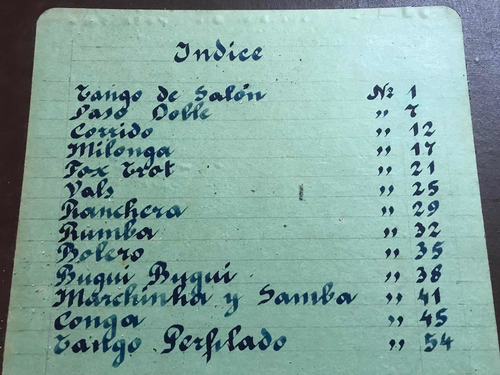 Indice
Tango de Salón Nº 1
Paso Doble " 7
Corrido " 12
Milonga " 17
Fox Trot " 21
Vals " 25
Ranchera " 29
Rumba " 32
Bolero " 35
Bugui Bugui " 38
Marchinha y Samba " 41
Conga " 45
Tango Perfilado " 54